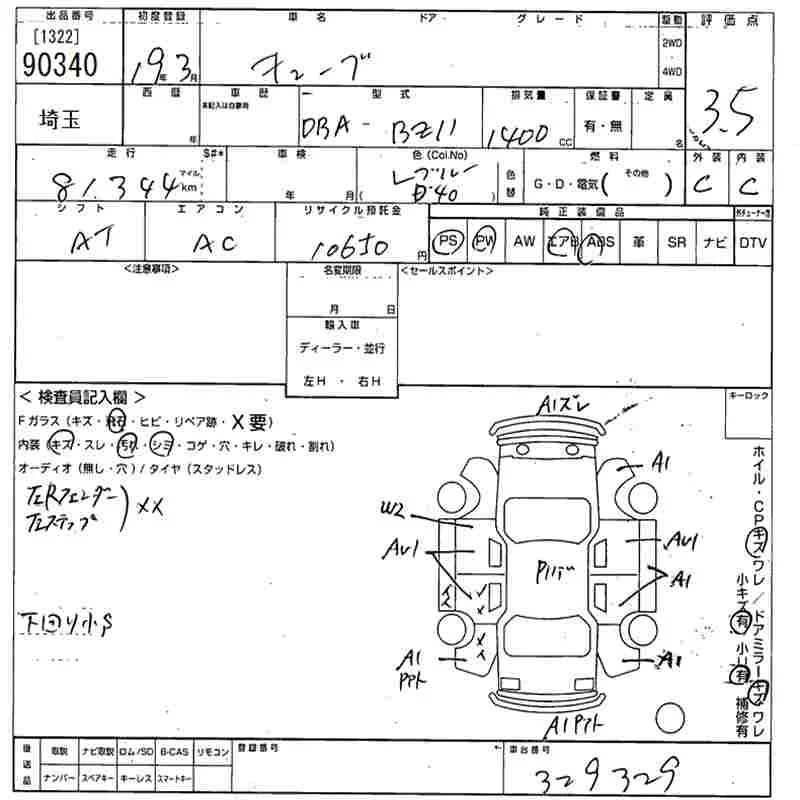 出品番号 初度登録 車名 ドア グレード 駆動 評価点
[1322]
90340
19年3月 キューブ 2WD
4WD
3.5
埼玉 西暦 車歴 型式 排気量 保証書 定員
本記入は自家用
年 DBA - BZ11 1400cc 有・無 名
走行 S#* 車検 色(Col.No) 燃料 外装 内装
81,344 マイル km 年 月 ( レブルー B40 ) 色替 G・D・電気( その他 ) C C
シフト エアコン リサイクル預託金 純正装備品
AT AC 10650円 PS PW AW エアB ABS 革 SR ナビ DTV
<注意事項> 名変期限 <セールスポイント>
月 日
輸入車
ディーラー・並行
左H ・ 右H
< 検査員記入欄 > キーロック
Fガラス (キズ・飛石・ヒビ・リペア跡・X要)
内装 (キズ・スレ・汚れ・シミ・コゲ・穴・キレ・破れ・割れ)
オーディオ (無し・穴) / タイヤ (スタッドレス)
左Rフェンダー
左ステップ ) XX
下回り小S
A1ズレ
A1
W2
AU1 AU1
A1
A1
PPt
A1
A1
ホイル・CPキズワレ/ドアミラーキズワレ
小キズ有 小U有 補修有
後送品 取説 ナビ取説 ロム/SD B-CAS リモコン 登録番号 車台番号
ナンバー スペアキー キーレス スマートキー
329329